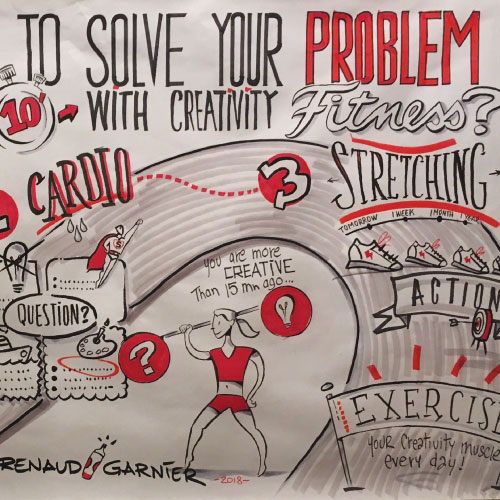 TO SOLVE YOUR PROBLEM
10'
WITH CREATIVITY Fitness?
CARDIO
3
STRETCHING
TOMORROW 1 WEEK 1 MONTH 1 YEAR
S
you are more
CREATIVE
Than 15 mn ago...
ACTION
QUESTION?
?
EXERCISE
your Creativity muscle
every day!
RENAUD GARNIER
-2018-